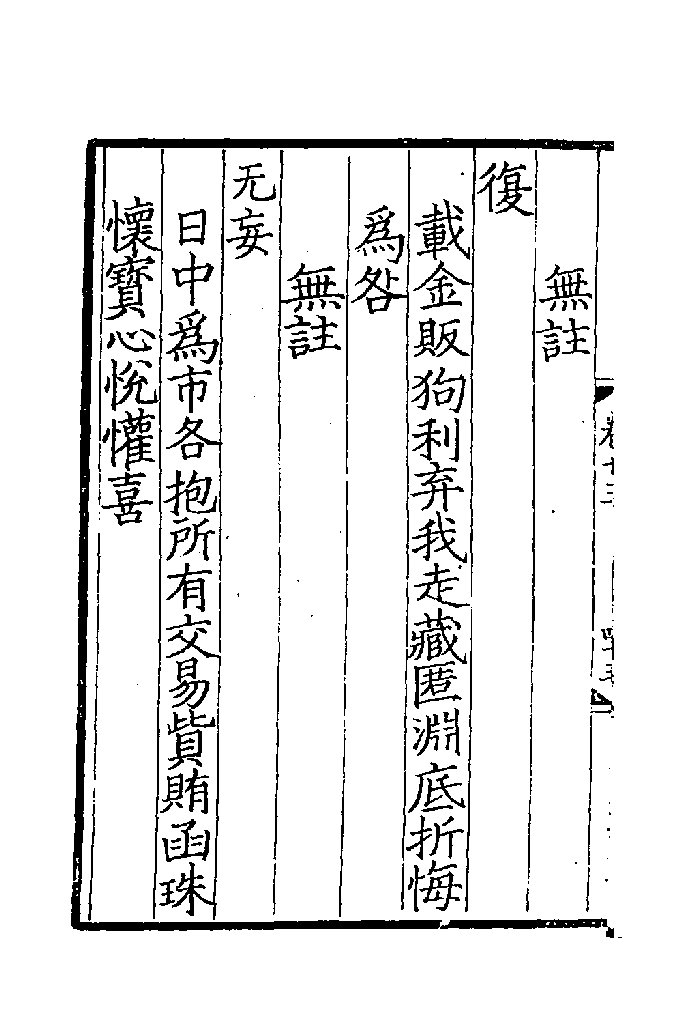 無註
復
載金販狗利弃我走藏匿淵底折悔
爲咎
無註
无妄
日中爲市各抱所有交易貲賄函珠
懷寶心悅懽喜